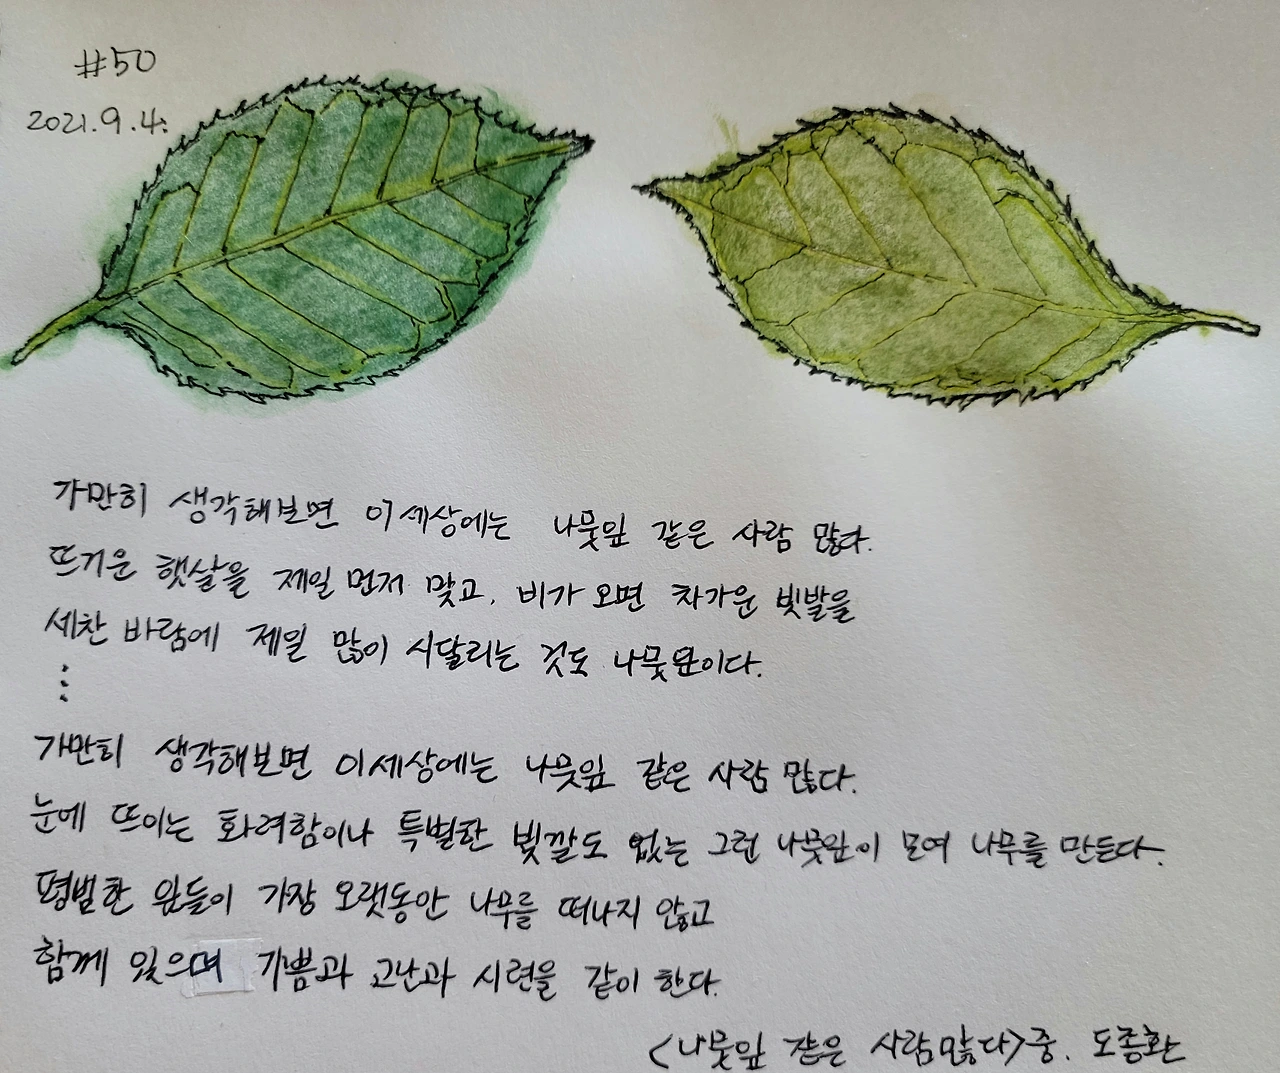 #50
2021.9.4.
가만히 생각해보면 이 세상에는 나뭇잎 같은 사람 많다.
뜨거운 햇살을 제일 먼저 맞고, 비가 오면 차가운 빗발을
세찬 바람에 제일 많이 시달리는 것도 나뭇잎이다.
⋮
가만히 생각해보면 이 세상에는 나뭇잎 같은 사람 많다.
눈에 뜨이는 화려함이나 특별한 빛깔도 없는 그런 나뭇잎이 모여 나무를 만든다.
평범한 잎들이 가장 오랫동안 나무를 떠나지 않고
함께 있으며 기쁨과 고난과 시련을 같이 한다.
<나뭇잎 같은 사람 많다>중. 도종환